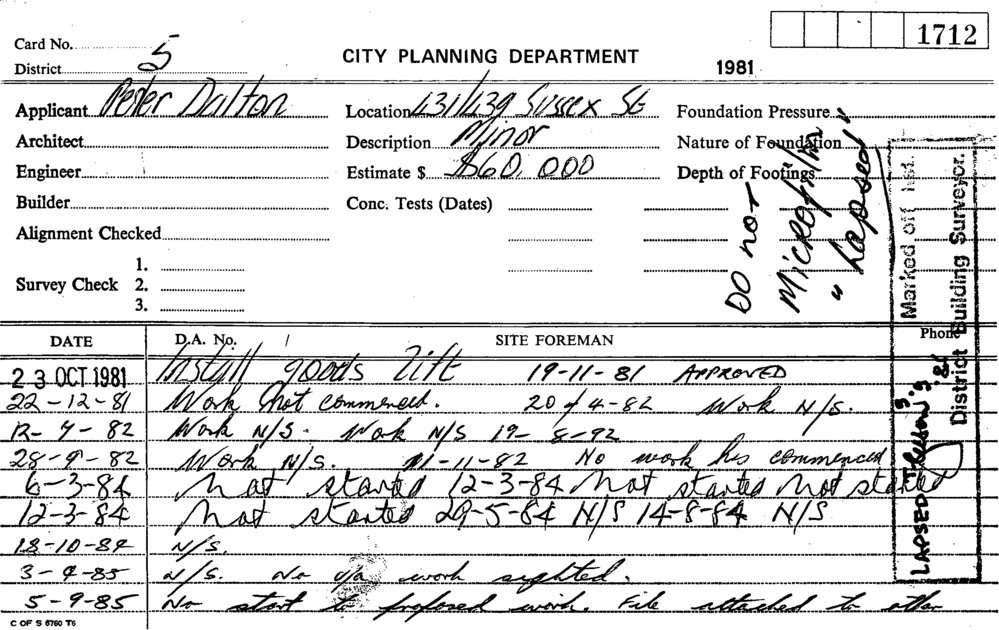 1712
Card No. 5
District
CITY PLANNING DEPARTMENT
1981
Applicant Peter Dalton
Location 431/439 Sussex St
Foundation Pressure
Architect
Description Minor
Nature of Foundation
Engineer
Estimate $ $60,000
Depth of Footings
Builder
Conc. Tests (Dates)
Alignment Checked
Survey Check
1.
2.
3.
DO not
Microfilm
"Lapsed"
Marked off list
District Building Surveyor.
LAPSED
DATE
D.A. No.
SITE FOREMAN
Phone
23 OCT 1981 Install goods lift 19-11-81 APPROVED
22-12-81 Work not commenced. 20-4-82 Work N/S.
12-7-82 Work N/S. Work N/S 19-8-92
28-9-82 Work N/S. 11-11-82 No work has commenced
6-3-84 Not started 12-3-84 Not started Not started
12-3-84 Not started 29-5-84 N/S 14-8-84 N/S
18-10-84 N/S.
3-4-85 N/S. No work sighted.
5-9-85 No start to proposed work. File attached to other
C OF S 6760 T6